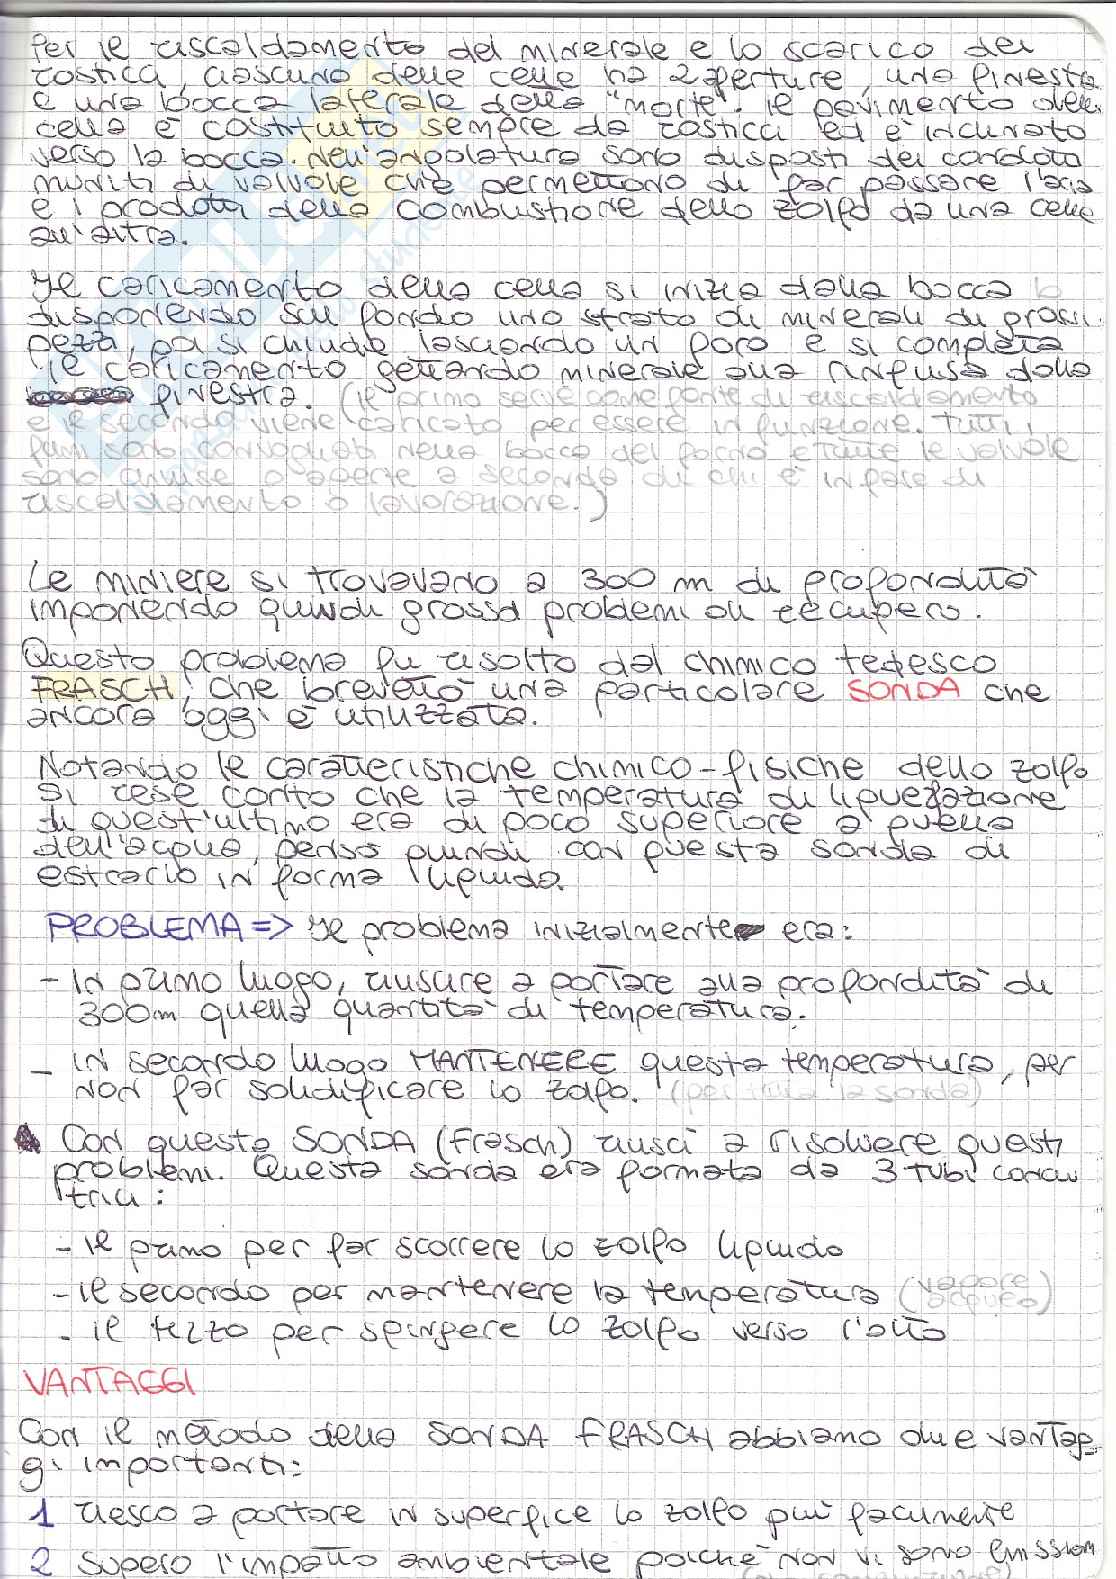 Per il riscaldamento del minerale e lo scarico dei
rosticci, ciascuno delle celle ha 2 aperture, una finestra
e una bocca laterale della "morte". Il pavimento della
cella è costituito sempre da rosticci ed è inclinato
verso la bocca. Nell'angolatura sono disposti dei condotti
muniti di valvole che permettono di far passare l'aria
e i prodotti della combustione dello zolfo da una cella
all'altra.
Il caricamento della cella si inizia dalla bocca
disponendo sul fondo uno strato di minerali di grossi
pezzi, poi si chiude lasciando un foro e si completa
il caricamento gettando minerale alla rinfusa dalla
finestra. (il primo serve come fonte di riscaldamento
e il secondo viene caricato per essere in funzione. Tutti i
fumi sono convogliati nella bocca del forno e tutte le valvole
sono chiuse o aperte a seconda di chi è in fase di
riscaldamento o lavorazione.)
Le miniere si trovavano a 300 m di profondità
imponendo quindi grossi problemi di recupero.
Questo problema fu risolto dal chimico tedesco
FRASCH, che brevettò una particolare SONDA che
ancora oggi è utilizzata.
Notando le caratteristiche chimico-fisiche dello zolfo
si rese conto che la temperatura di liquefazione
di quest'ultimo era di poco superiore a quella
dell'acqua, pensò quindi con questa sonda di
estrarlo in forma liquida.
PROBLEMA => Il problema inizialmente era:
- In primo luogo, riuscire a portare alla profondità di
300m quella quantità di temperatura.
- In secondo luogo MANTENERE questa temperatura, per
non far solidificare lo zolfo. (per tutta la sonda)
Con questa SONDA (Frasch) riuscì a risolvere questi
problemi. Questa sonda era formata da 3 tubi concen
trici:
- il primo per far scorrere lo zolfo liquido
- il secondo per mantenere la temperatura (vapore acqueo)
- il terzo per spingere lo zolfo verso l'alto
VANTAGGI
Con il metodo della SONDA FRASCH abbiamo due vantag
gi importanti:
1 riesco a portare in superfice lo zolfo più facilmente
2 Supero l'impatto ambientale poichè non vi sono emission